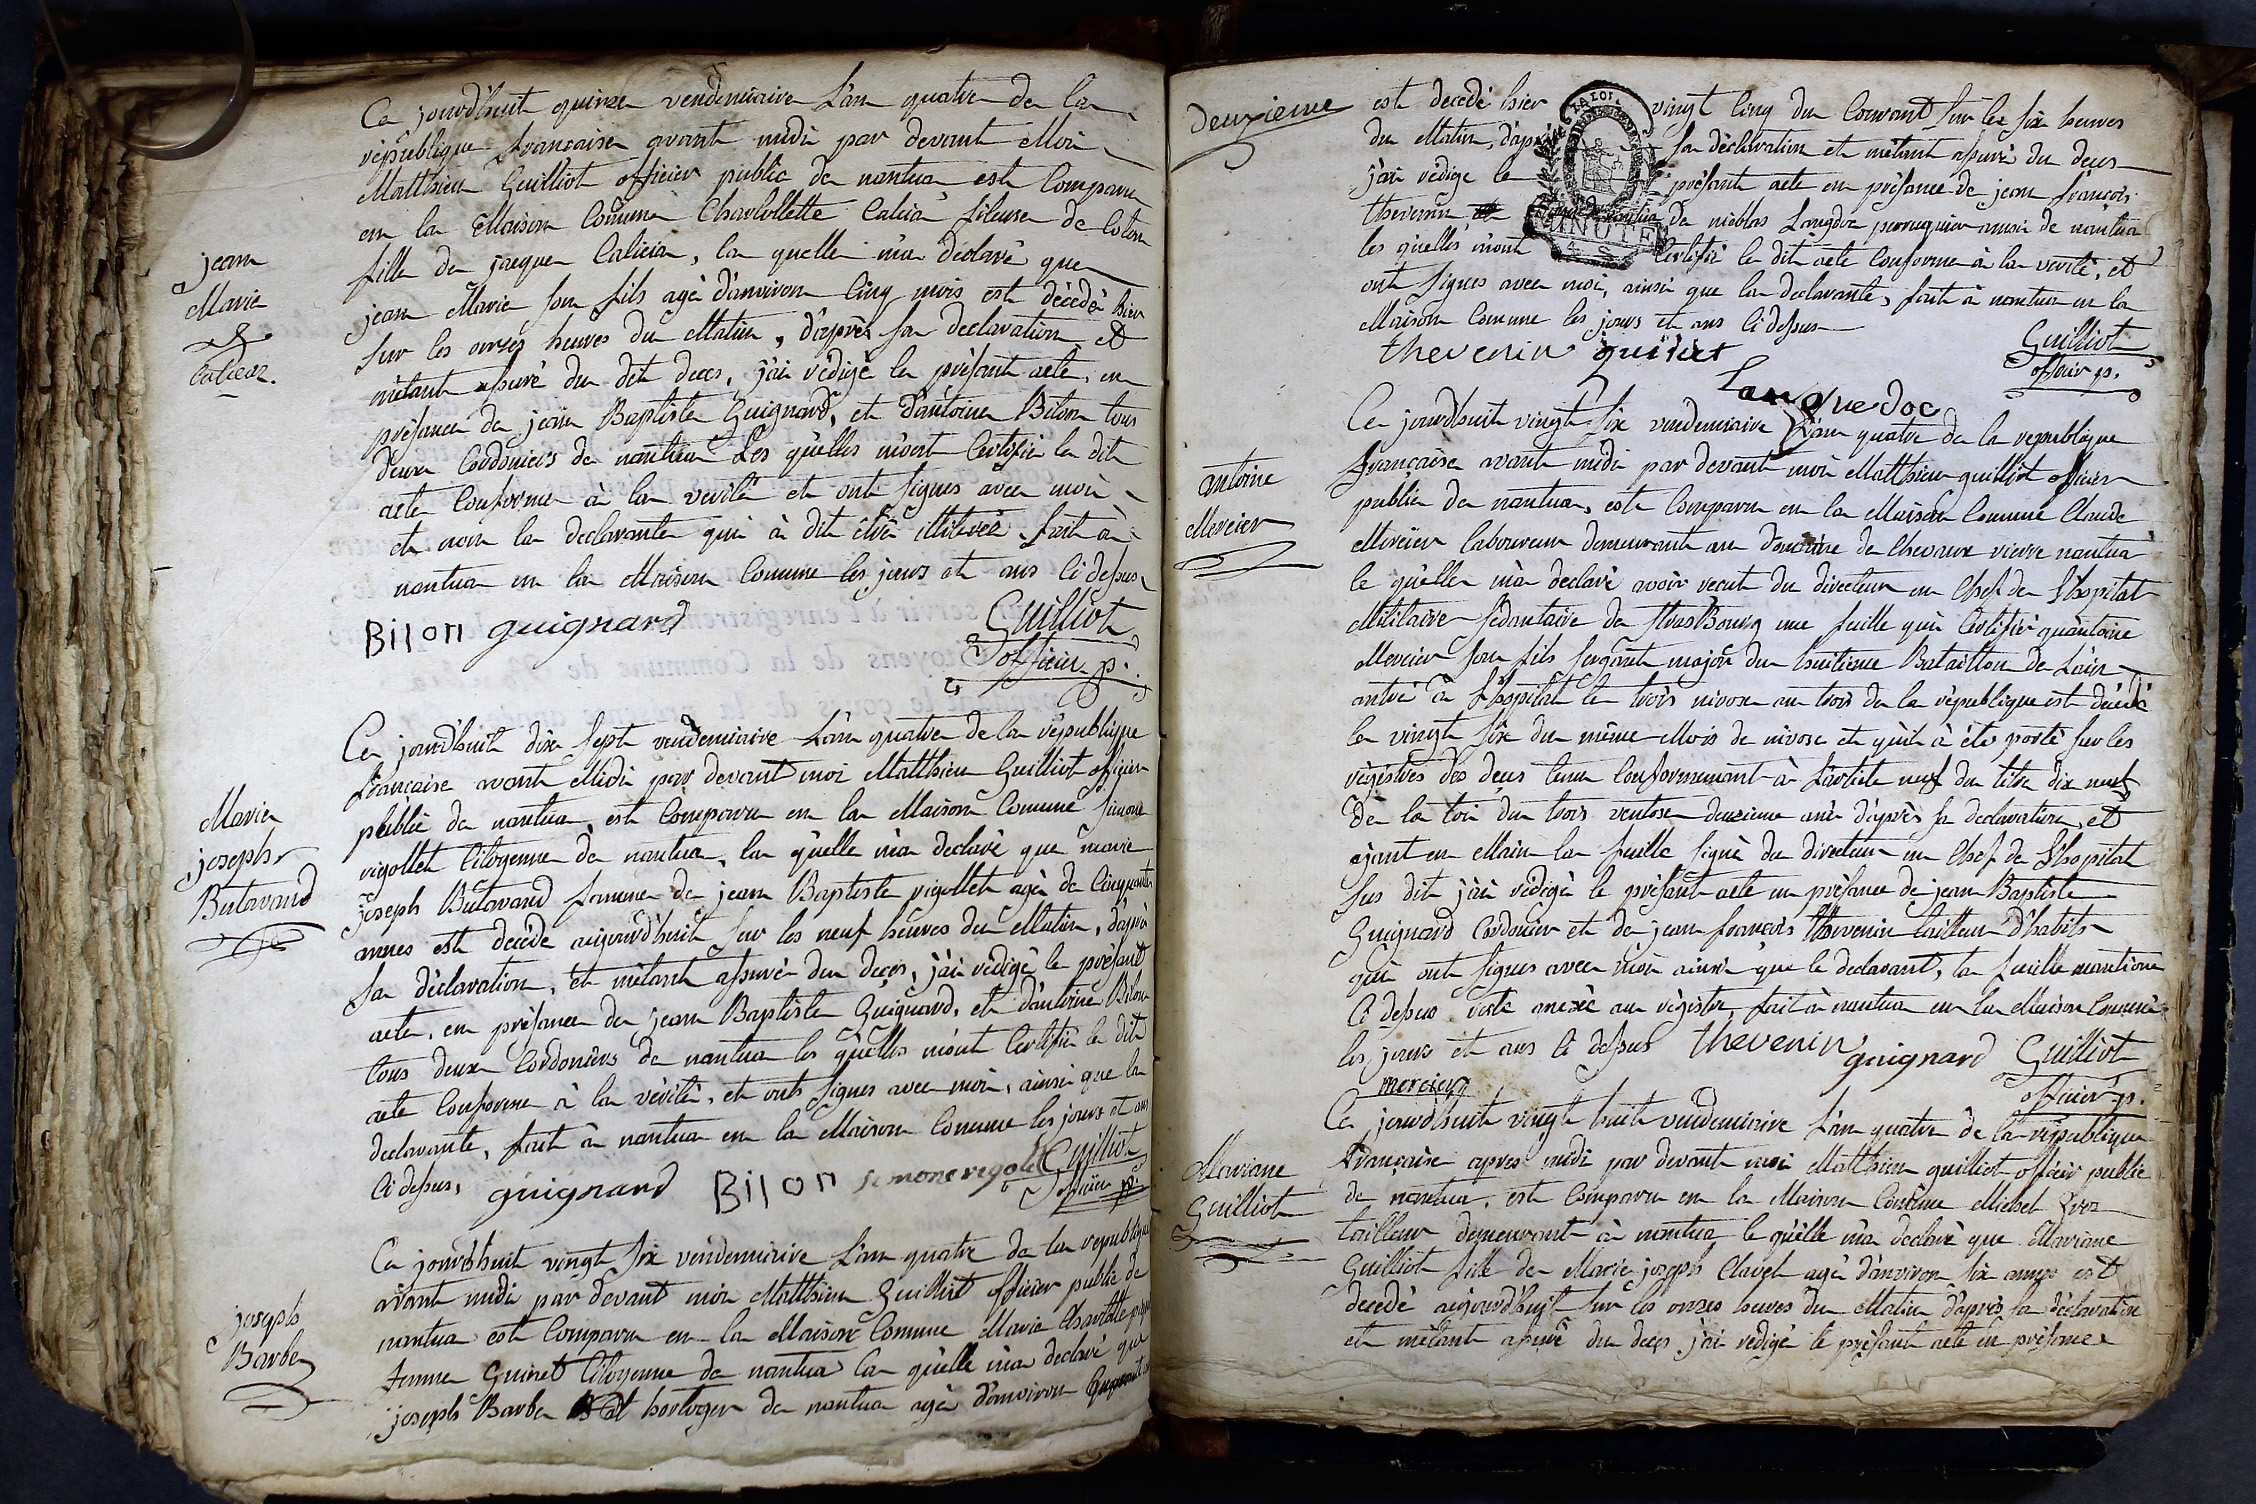 Ce jourd'huit quinze vendemiaire L'an quatre de la
république française avant midi par devant Moi
Matthieu Guilliot officier public de nantua est Comparu
en la Maison Comune Charlollette Calicia fileuse de Coton
fille de jacque Calicia, la quelle m'a déclaré que
jean Marie son fils agé d'anviron Cinq mois est décédé hier
sur les onzes heures du Matin, d'après sa declaration et
mêtant assuré du dit deces, j'ai rédigé le présant acte, en
présance de jean Baptiste Guignard, et d'antoine Bilon tous
deux Cordoniers de nantua Les qu'elles m'ont Certifié le dit
acte Conforme à la verité et ont signes avec moi
et non la declarante qui à dit être illiterée. fait à
nantua en la Maison Comune les jours et ans Ci dessus
jean
Marie
Calicia.
Bilon guignard Guilliot
officier p.
Ce jourd'huit dix sept vendemiaire L'an quatre de la république
française avant Midi par devant moi Matthieu Guilliot officier
public de nantua, est Comparu en la Maison Comune simone
rigollet Citoyenne de nantua, la qu'elle m'a declaré que marie
joseph Butavand famme de jean Baptiste rigollet agé de Cinquante
annes est decéde aujourd'huit sur les neuf heures du Matin, d'après
sa déclaration, et mêtant assuré du deces, j'ai rédigé le présant
acte, en présance de jean Baptiste Guignard, et d'antoine Bilon
tous deux Cordoniers de nantua les qu'elles m'ont Certifié le dit
acte Conforme à la vérité, et ont signes avec moi, ainsi que la
declarante, fait à nantua en la Maison Comune les jours et ans
Ci dessus,
Marie
joseph
Butavand
guignard Bilon simone rigolet Guilliot
officier p.
Ce jourd'huit vingt six vendemiaire L'an quatre de la republique
avant midi par devant moi Matthieu Guilliot officier public de
nantua est Comparu en la Maison Comune Marie Charlotte
femme Guinet Citoyenne de nantua la qu'elle m'a declaré que
joseph Barbe horloger de nantua agé d'anviron
joseph
Barbe
Deuxieme
est decedé hier vingt Cinq du Courant sur les six heures
du Matin, d'après sa déclaration et mêtant assuré du deces
j'ai rédigé le présant acte en présance de jean françois
thevenin de nicolas Langdoc perruquier aussi de nantua
les qu'elles m'ont Certifié le dit acte Conforme à la verité, et
ont signes avec moi, ainsi que la declarante, fait à nantua en la
Maison Comune les jours et ans Ci dessus
LA LOI
MINUTE
thevenin guinet Guilliot
officier p.
Languedoc
Ce jourd'huit vingt six vendemiaire L'an quatre de la republique
française avant midi par devant moi Matthieu guilliot officier
public de nantua, est Comparu en la Maison Comune Claude
Mercier laboureur demeurant au domaine de Chevaux rierre nantua
le qu'elle m'a declaré avoir recut du directeur en Chef de L'hopital
Militaire sédantaire de strasBourg une feuille qui Certifié qu'antoine
Mercier son fils sergent major du huitieme Bataillon de L'ain
antré à L'hopital le trois nivose an trois de la république est décédé
le vingt six du même Mois de nivose et qu'il à été porté sur les
registres des deces tenu Conformement à L'article neuf du titre dix neuf
de la loi du trois ventose deuxieme anée d'après sa declaration, et
ajant en Main la feuille signé du directeur en Chef de L'hopital
sus dit j'ai rédigé le présant acte en présance de jean Baptiste
Guignard Cordonier et de jean françois thevenin tailleur d'habits
qui ont signes avec moi ainsi que le declarant, la feuille mantione
Ci dessus reste anexée au registre, fait à nantua en la Maison Comune
les jours et ans Ci dessus thevenin guignard Guilliot
officier p.
mercier
antoine
Mercier
Ce jourd'huit vingt huit vendemiaire L'an quatre de la république
française apres midi par devant moi Matthieu guilliot officier public
de nantua, est Comparu en la Maison Comune Michel
tailleur demeurant à nantua le qu'elle m'a declaré que Mariane
Guilliot fille de Marie joseph Clavel agé d'anviron six annes est
decedé aujourd'huit sur les onzes heures du Matin d'après sa déclaration
et mêtant assuré du deces j'ai redigé le présant acte en présance
Mariane
Guilliot